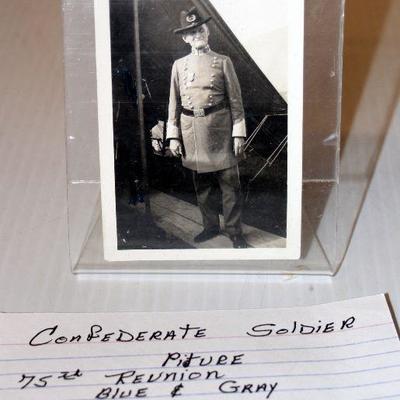 Confederate Soldier
Piture
75th Reunion
Blue & Gray